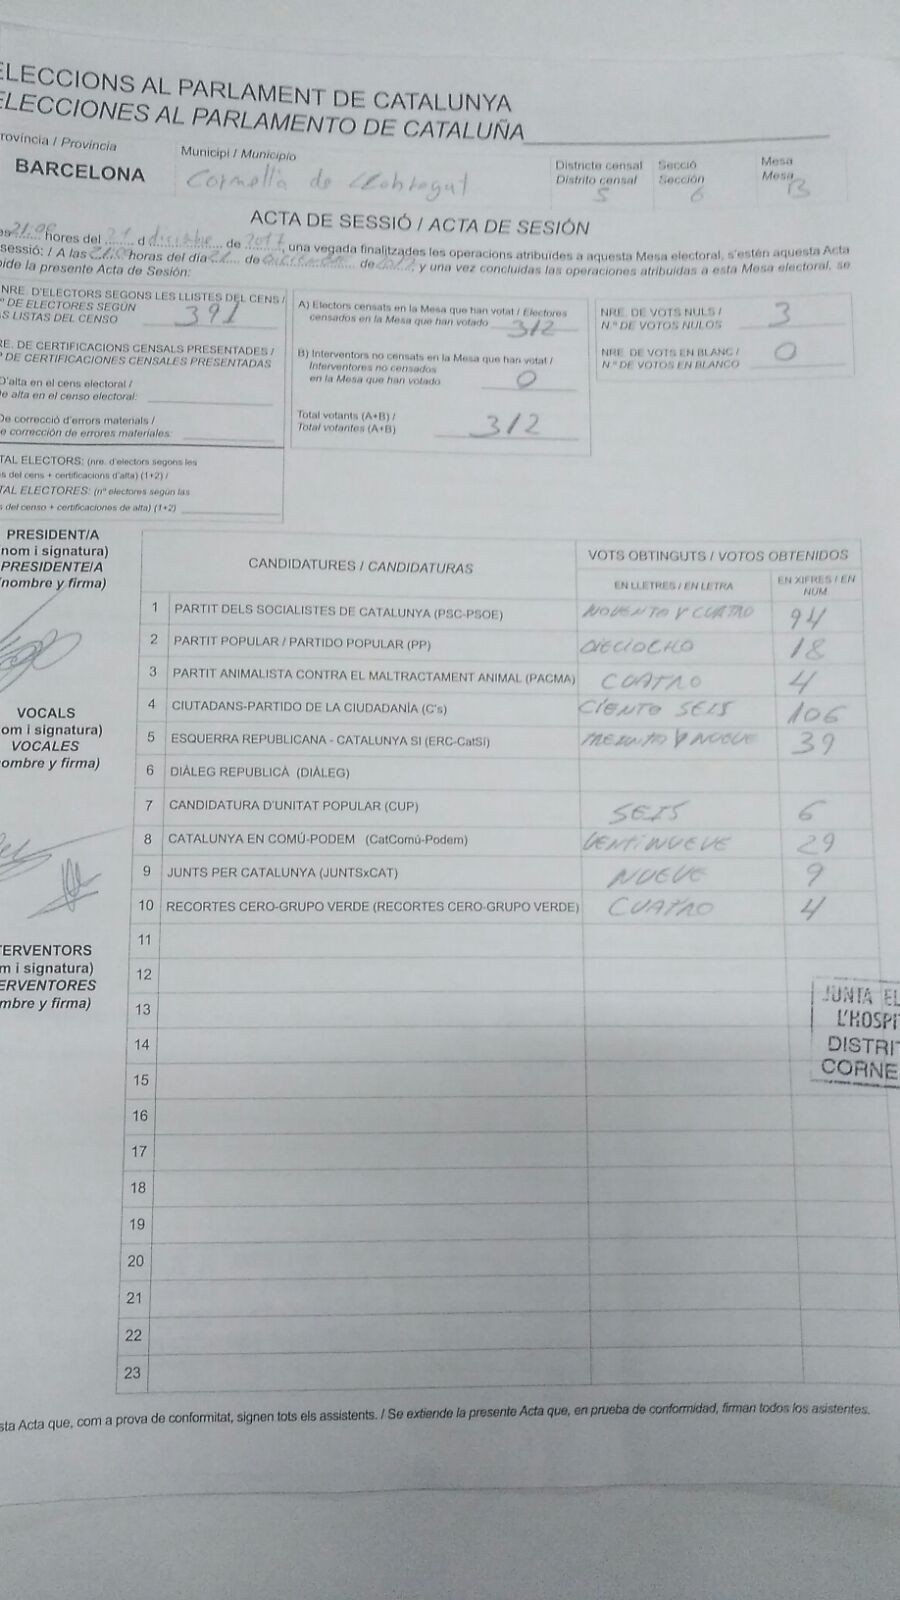 ELECCIONS AL PARLAMENT DE CATALUNYA
ELECCIONES AL PARLAMENTO DE CATALUÑA
rovíncia / Provincia
BARCELONA
Municipi / Municipio
Cornellà de Llobregat
Districte censal
Distrito censal
5
Secció
Sección
6
Mesa
Mesa
B
ACTA DE SESSIÓ / ACTA DE SESIÓN
es 21.00 hores del 21 d diciembre de 2017, una vegada finalitzades les operacions atribuïdes a aquesta Mesa electoral, s'estén aquesta Acta
sessió: / A las horas del día 21 de diciembre de 2017 y una vez concluidas las operaciones atribuidas a esta Mesa electoral, se
pide la presente Acta de Sesión:
NRE. D'ELECTORS SEGONS LES LLISTES DEL CENS /
º DE ELECTORES SEGÚN
AS LISTAS DEL CENSO 391
RE. DE CERTIFICACIONS CENSALS PRESENTADES /
º DE CERTIFICACIONES CENSALES PRESENTADAS
D'alta en el cens electoral /
e alta en el censo electoral:
De correcció d'errors materials /
e corrección de errores materiales:
TAL ELECTORS: (nre. d'electors segons les
s del cens + certificacions d'alta) (1+2) /
TAL ELECTORES: (nº electores según las
s del censo + certificaciones de alta) (1+2)
A) Electors censats en la Mesa que han votat / Electores
censados en la Mesa que han votado 312
B) Interventors no censats en la Mesa que han votat /
Interventores no censados
en la Mesa que han votado 0
Total votants (A+B) /
Total votantes (A+B) 312
NRE. DE VOTS NULS /
N.º DE VOTOS NULOS 3
NRE. DE VOTS EN BLANC /
N.º DE VOTOS EN BLANCO 0
PRESIDENT/A
nom i signatura)
PRESIDENTE/A
nombre y firma)
VOCALS
om i signatura)
VOCALES
ombre y firma)
TERVENTORS
m i signatura)
ERVENTORES
mbre y firma)
CANDIDATURES / CANDIDATURAS
VOTS OBTINGUTS / VOTOS OBTENIDOS
EN LLETRES / EN LETRA
EN XIFRES / EN
NÚM
1 PARTIT DELS SOCIALISTES DE CATALUNYA (PSC-PSOE) NOVENTA Y CUATRO 94
2 PARTIT POPULAR / PARTIDO POPULAR (PP) DIECIOCHO 18
3 PARTIT ANIMALISTA CONTRA EL MALTRACTAMENT ANIMAL (PACMA) CUATRO 4
4 CIUTADANS-PARTIDO DE LA CIUDADANÍA (C's) CIENTO SEIS 106
5 ESQUERRA REPUBLICANA - CATALUNYA SI (ERC-CatSí) TREINTA Y NUEVE 39
6 DIÀLEG REPUBLICÀ (DIÀLEG)
7 CANDIDATURA D'UNITAT POPULAR (CUP) SEIS 6
8 CATALUNYA EN COMÚ-PODEM (CatComú-Podem) VENTINUEVE 29
9 JUNTS PER CATALUNYA (JUNTSxCAT) NUEVE 9
10 RECORTES CERO-GRUPO VERDE (RECORTES CERO-GRUPO VERDE) CUATRO 4
11
12
13
14
15
16
17
18
19
20
21
22
23
JUNTA EL
L'HOSPI
DISTRI
CORNE
sta Acta que, com a prova de conformitat, signen tots els assistents. / Se extiende la presente Acta que, en prueba de conformidad, firman todos los asistentes.